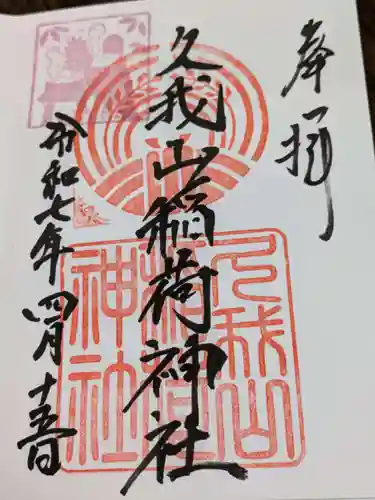 奉拝
久我山稲荷神社
久我山
稲荷
神社
令和七年四月十五日